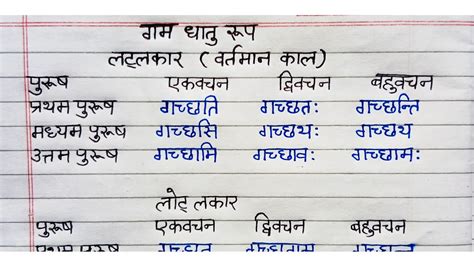 गम धातु रूप
लट्लकार ( वर्तमान काल )
पुरूष एकवचन द्विवचन बहुवचन
प्रथम पुरूष गच्छति गच्छतः गच्छन्ति
मध्यम पुरूष गच्छसि गच्छथः गच्छथ
उत्तम पुरूष गच्छामि गच्छावः गच्छामः
लोट् लकार
पुरूष एकवचन द्विवचन बहुवचन